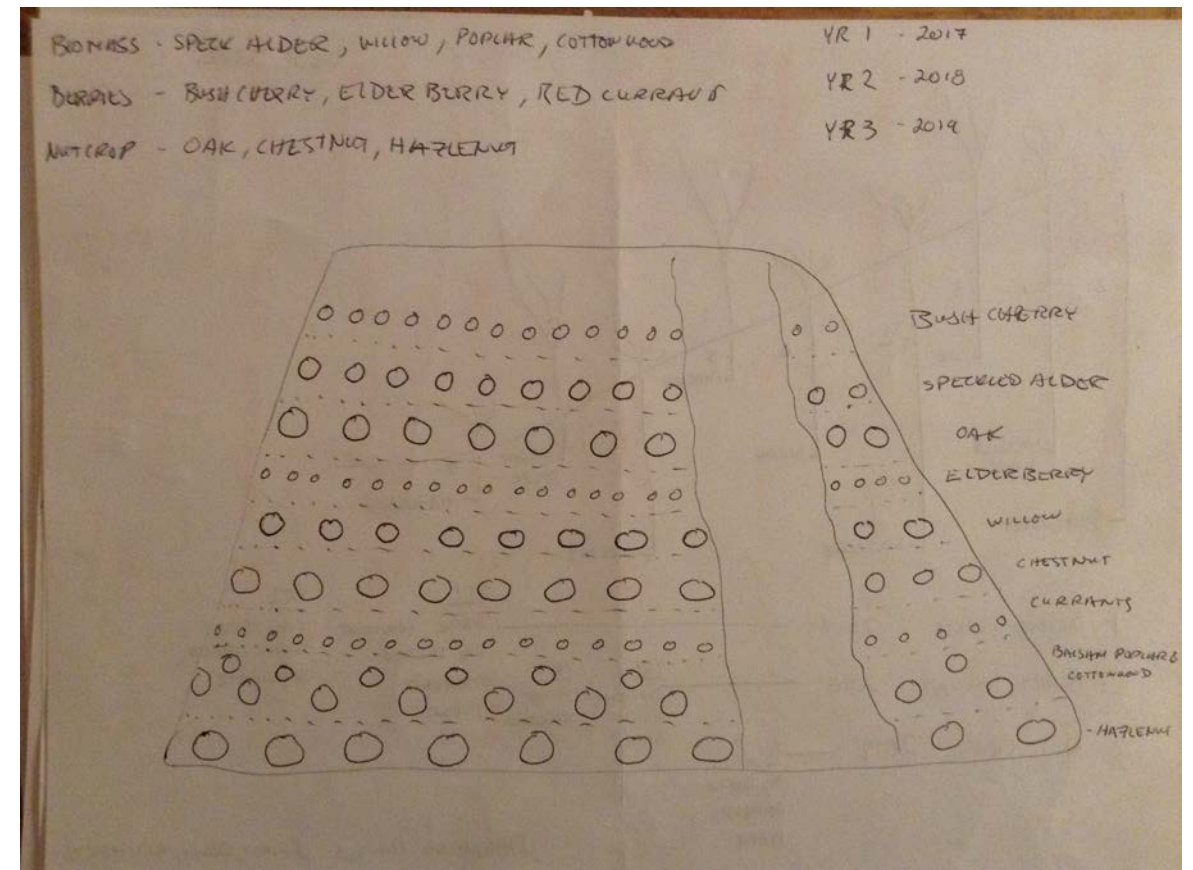 BIOMASS - SPECK ALDER, WILLOW, POPLAR, COTTONWOOD
YR 1 - 2017
BERRIES - BUSH CHERRY, ELDER BERRY, RED CURRANTS
YR 2 - 2018
NUTCROP - OAK, CHESTNUT, HAZLENUT
YR 3 - 2019
BUSH CHERRY
SPECKLED ALDER
OAK
ELDERBERRY
WILLOW
CHESTNUT
CURRANTS
BALSAM POPLAR &
COTTONWOOD
- HAZLENUT